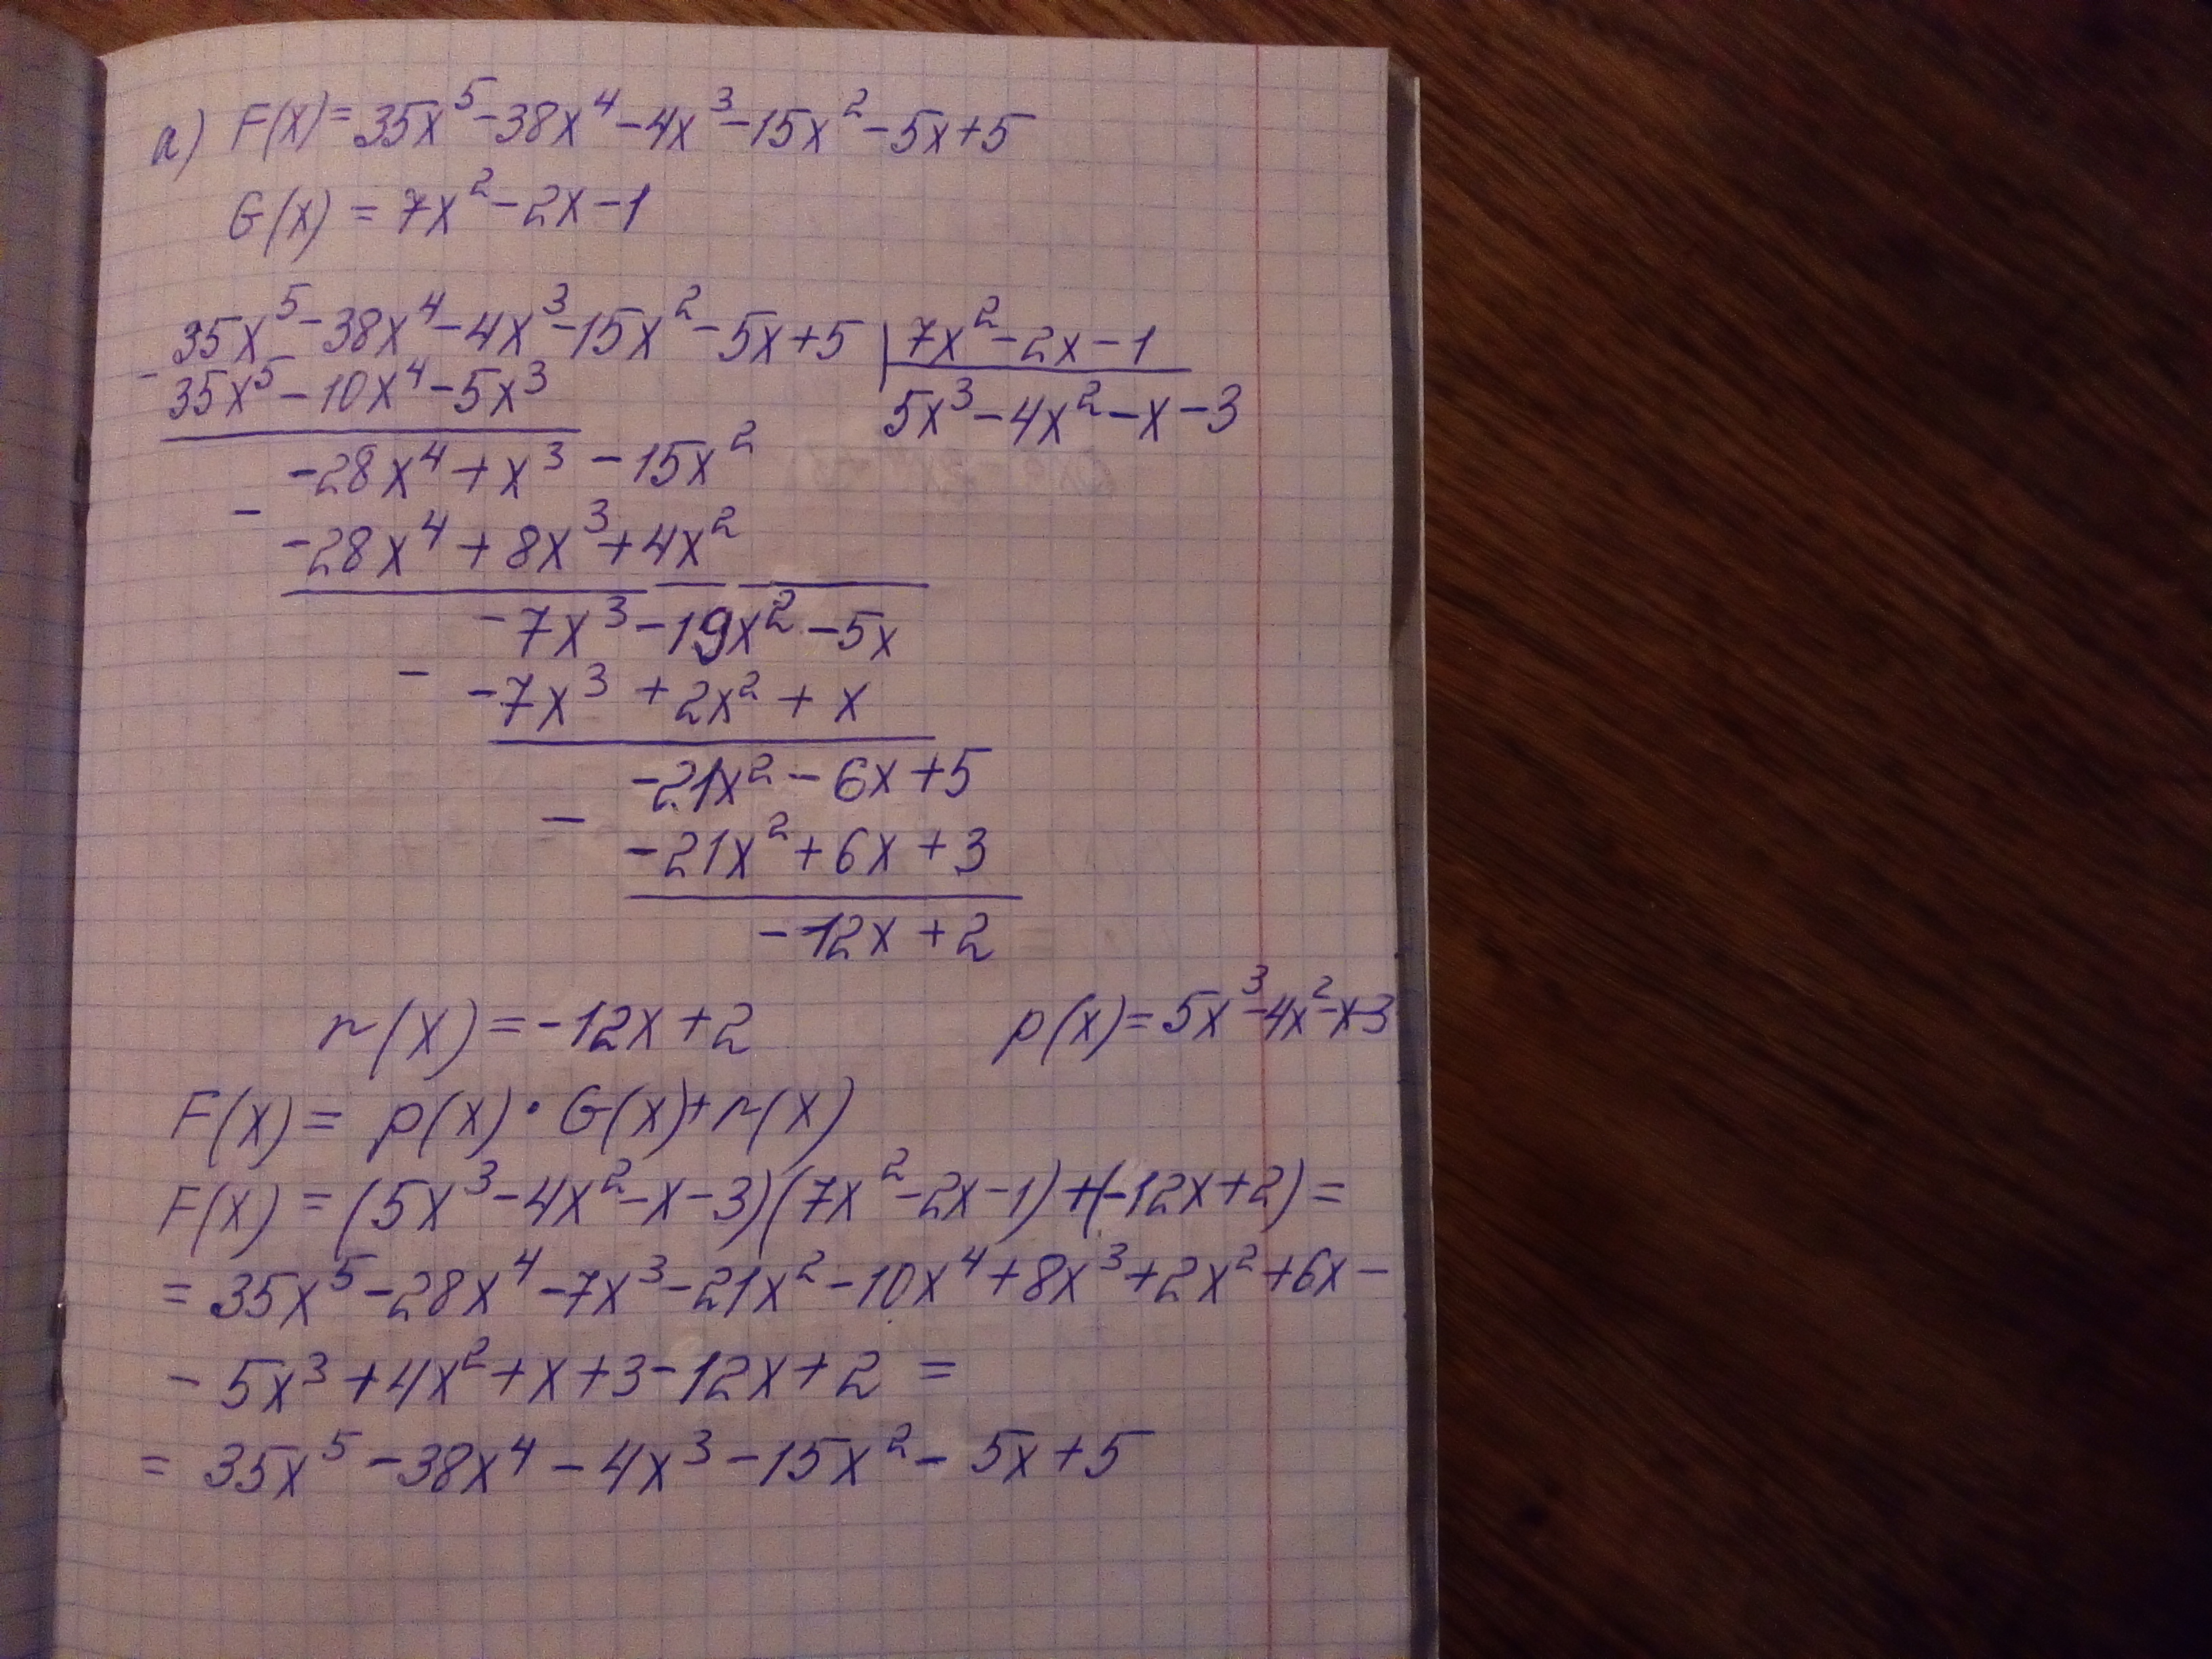 а) F(x)=35x⁵-38x⁴-4x³-15x²-5x+5
G(x) = 7x²-2x-1
35x⁵-38x⁴-4x³-15x²-5x+5 | 7x²-2x-1
- 35x⁵-10x⁴-5x³ 5x³-4x²-x-3
-28x⁴+x³-15x²
-
-28x⁴+8x³+4x²
-7x³-19x²-5x
-
-7x³+2x²+x
-21x²-6x+5
-
-21x²+6x+3
-12x+2
r(x)=-12x+2 p(x)=5x³-4x²-x-3
F(x)= p(x)·G(x)+r(x)
F(x)=(5x³-4x²-x-3)(7x²-2x-1)+(-12x+2)=
=35x⁵-28x⁴-7x³-21x²-10x⁴+8x³+2x²+6x-
-5x³+4x²+x+3-12x+2=
=35x⁵-38x⁴-4x³-15x²-5x+5